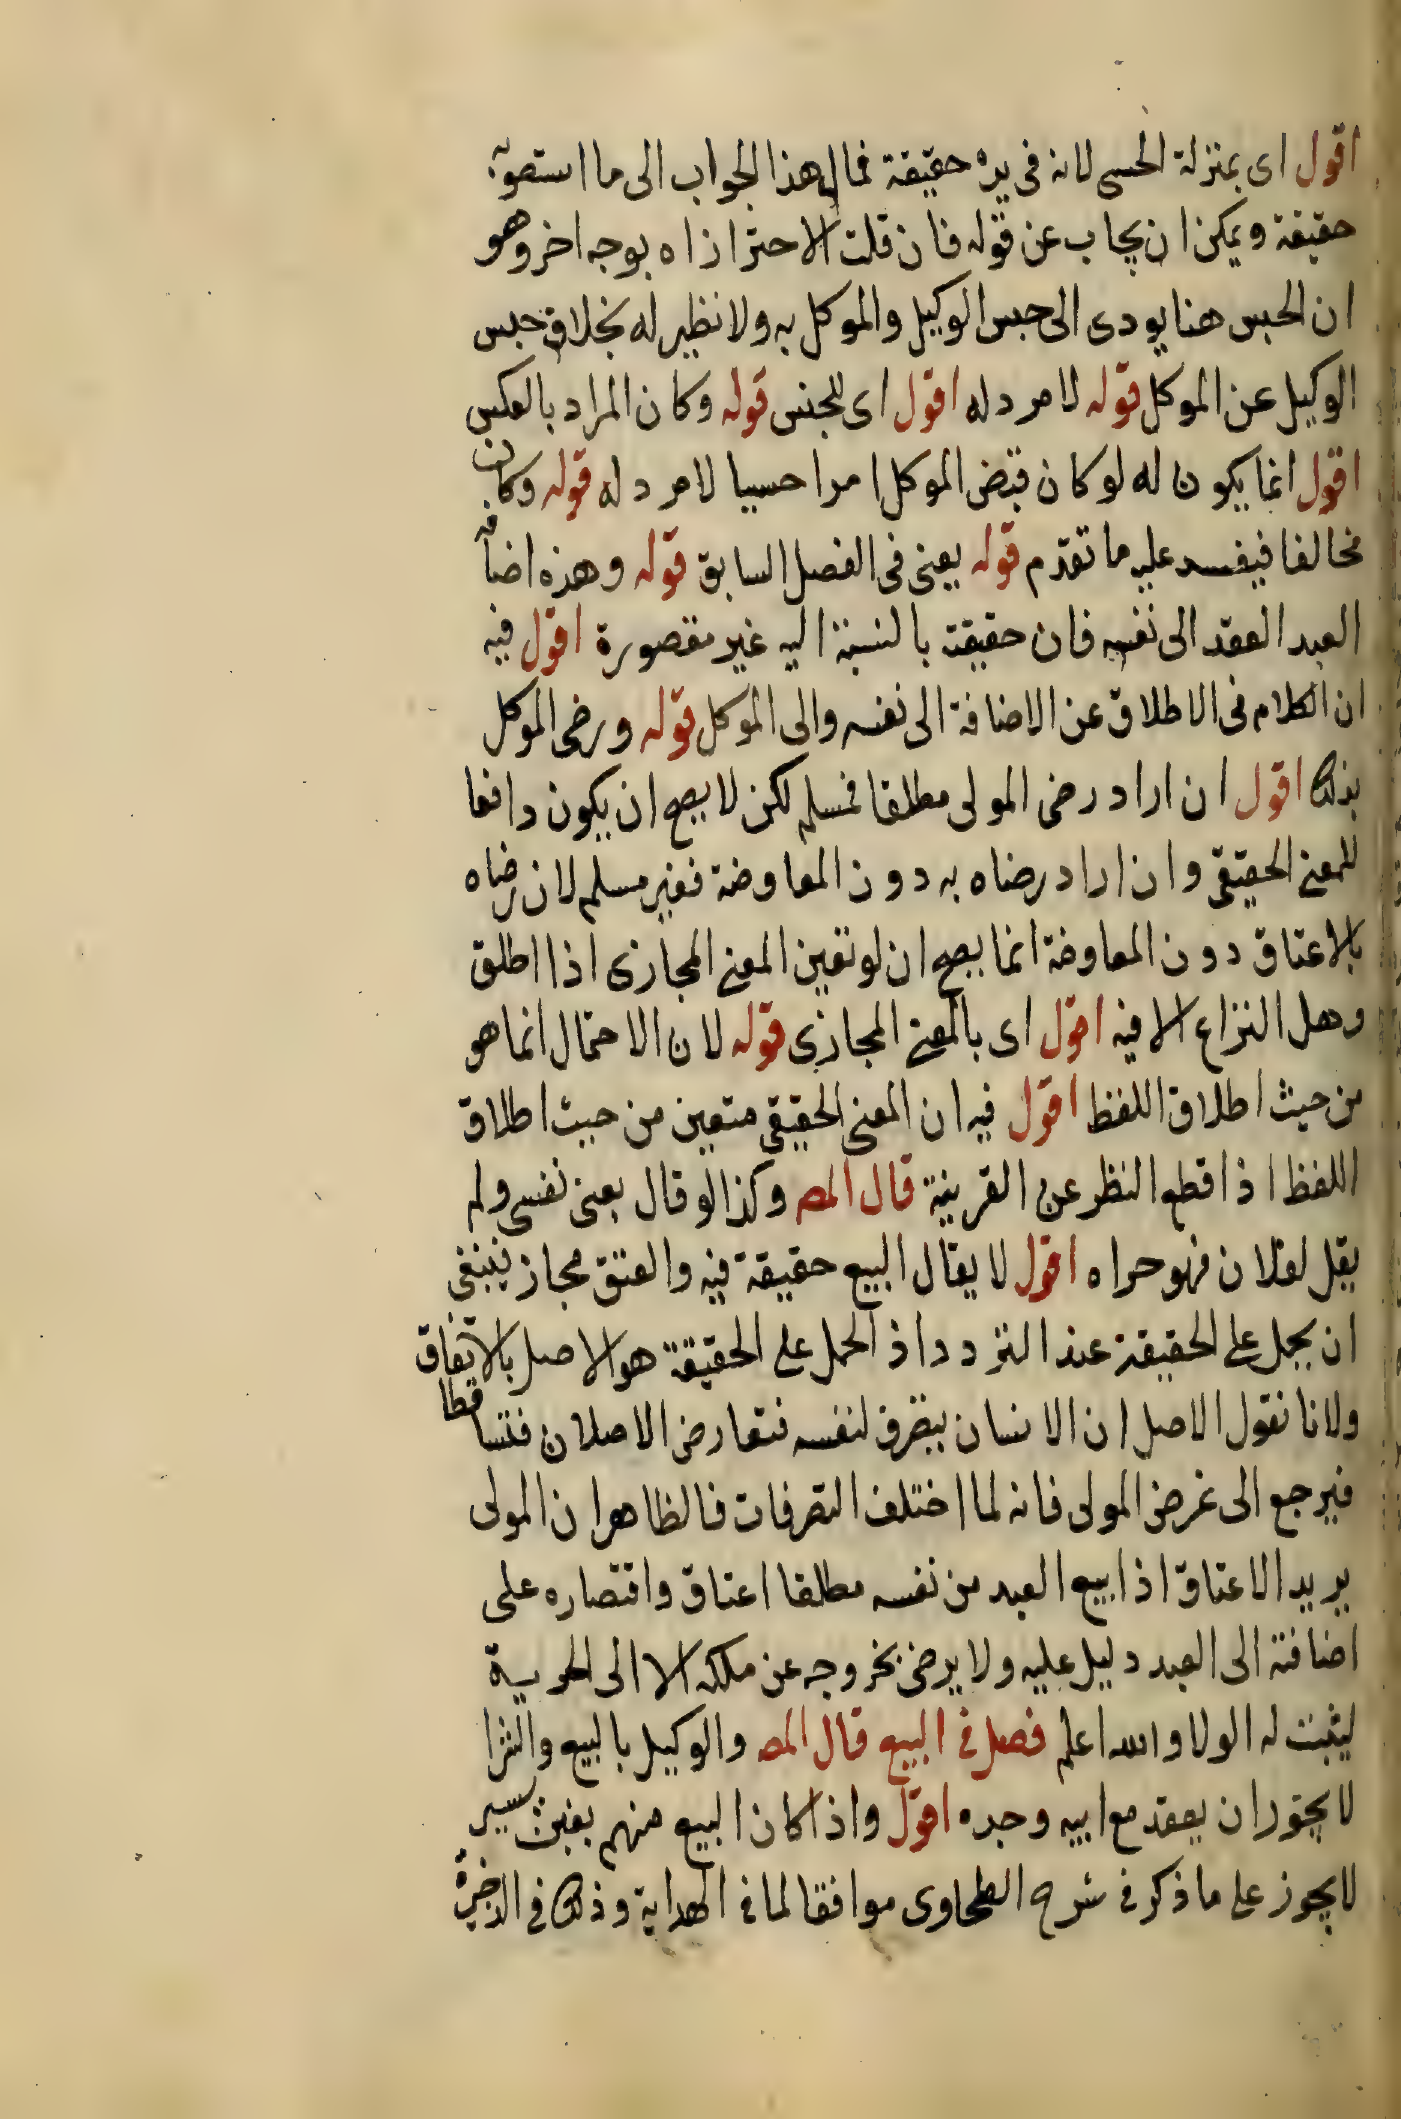 اقول اى بمنزلة الحسى لانه فى يده حقيقة فمال هذا الجواب الى ما استصوبه
حقيقة ويمكن ان يجاب عن قوله فان قلت الاحتراز اه بوجه اخر وهو
ان الحبس هنا يودى الى حبس الوكيل والموكل به ولا نظير له بخلاف حبس
الوكيل عن الموكل قوله لا مرد له اقول اى للجنس قوله وكان المراد بالعكس
اقول انما يكون له لو كان قبض الموكل امرا حسيا لا مرد له قوله وكان
مخالفا فيفسد عليه ما تقدم قوله يعنى فى الفصل السابق قوله وهذه اضافة
العبد العقد الى نفسه فان حقيقة بالنسبة اليه غير مقصورة اقول فيه
ان الكلام فى الاطلاق عن الاضافة الى نفسه والى الموكل قوله ورضى الموكل
بذلك اقول ان اراد رضى المولى مطلقا فمسلم لكن لا يصح ان يكون دافعا
للمعنى الحقيقى وان اراد رضاه به دون المعاوضة فغير مسلم لان رضاه
بالاعتاق دون المعاوضة انما يصح ان لو تعين المعنى المجازى اذا اطلق
وهل النزاع الا فيه اقول اى بالمعنى المجازى قوله لان الاحتمال انما هو
من حيث اطلاق اللفظ اقول فيه ان المعنى الحقيقى متعين من حيث اطلاق
اللفظ اذا قطع النظر عن القرينة قال المص وكذا لو قال بعنى نفسى ولم
يقل لفلان فهو حر اه اقول لا يقال البيع حقيقة فيه والعتق مجاز ينبغى
ان يحمل على الحقيقة عند التردد اذ الحمل على الحقيقة هو الاصل بالاتفاق
ولانا نقول الاصل ان الانسان يتصرف لنفسه فتعارض الاصلان فتساقطا
فيرجع الى غرض المولى فانه لما اختلف التصرفات فالظاهر ان المولى
يريد الاعتاق اذ ابيع العبد من نفسه مطلقا اعتاق واقتصاره على
اضافته الى العبد دليل عليه ولا يرضى بخروجه عن ملكه الا الى الحرية
ليثبت له الولا والله اعلم فصل فى البيع قال المص والوكيل بالبيع والشرا
لا يجوز ان يعقد مع ابيه وجده اقول واذا كان البيع منهم بغبن يسير
لا يجوز على ما ذكر فى شرح الطحاوى موافقا لما فى الهداية وذلك فى الذخيرة